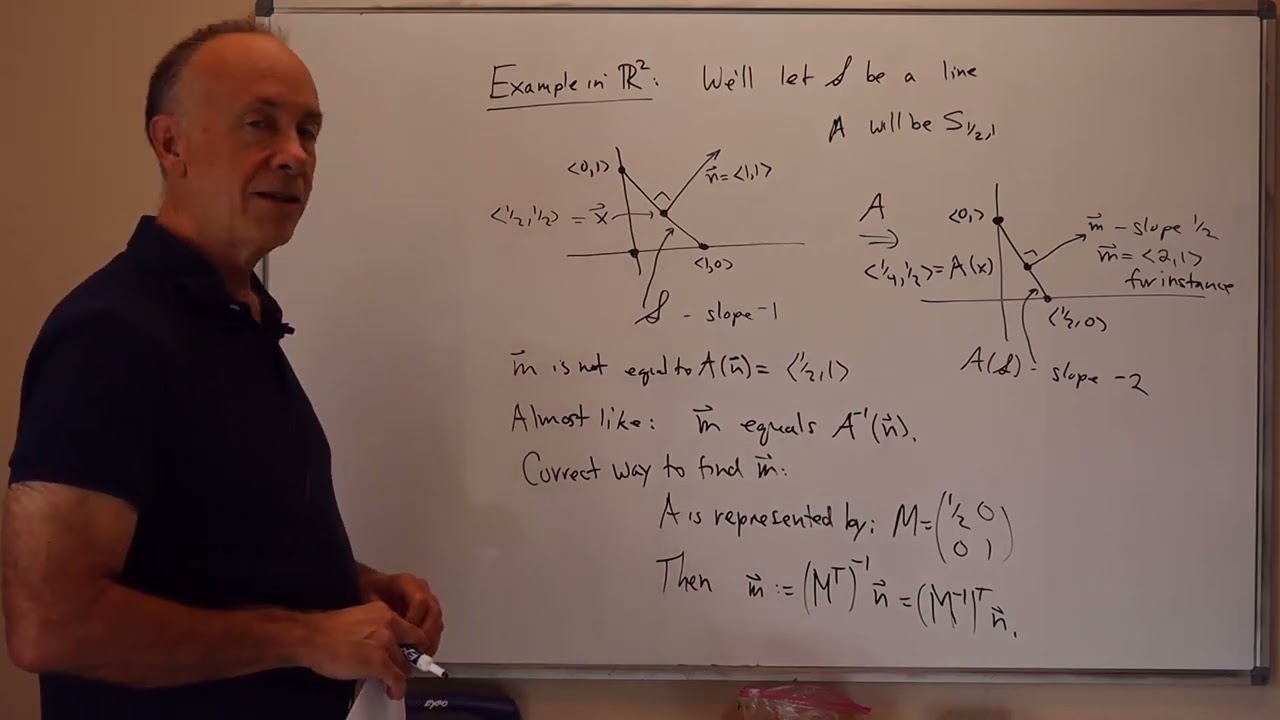 Example in ℝ²: We'll let 𝒮 be a line
A will be S₁/₂,₁
<0,1>
n⃗ = <1,1>
<½,½> = x⃗
<1,0>
𝒮 - slope -1
A
⇒
<¼,½> = A(x)
<0,>
m⃗ - slope ½
m⃗ = <2,1>
for instance
<½,0>
A(𝒮) - slope -2
m⃗ is not equal to A(n⃗) = <½,1>
Almost like: m⃗ equals A⁻¹(n⃗).
Correct way to find m⃗:
A is represented by: M = (½ 0
0 1)
Then m⃗ := (Mᵀ)⁻¹ n⃗ = (M⁻¹)ᵀ n⃗.